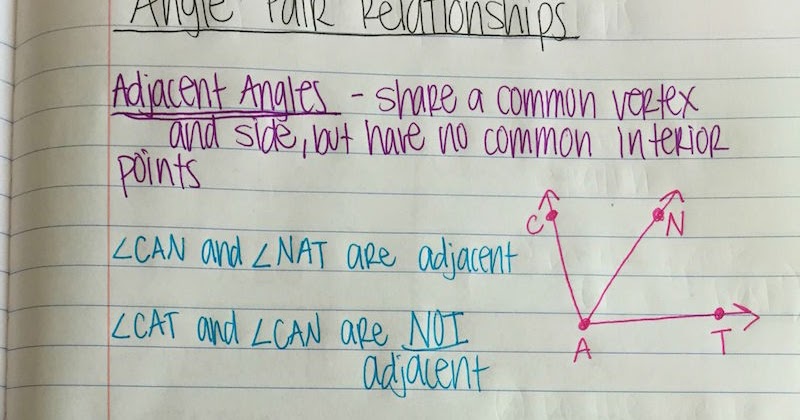 Angle Pair Relationships
Adjacent Angles - share a common vertex
and side, but have no common interior
points
C
N
∠CAN and ∠NAT are adjacent
∠CAT and ∠CAN are NOT
adjacent
A
T